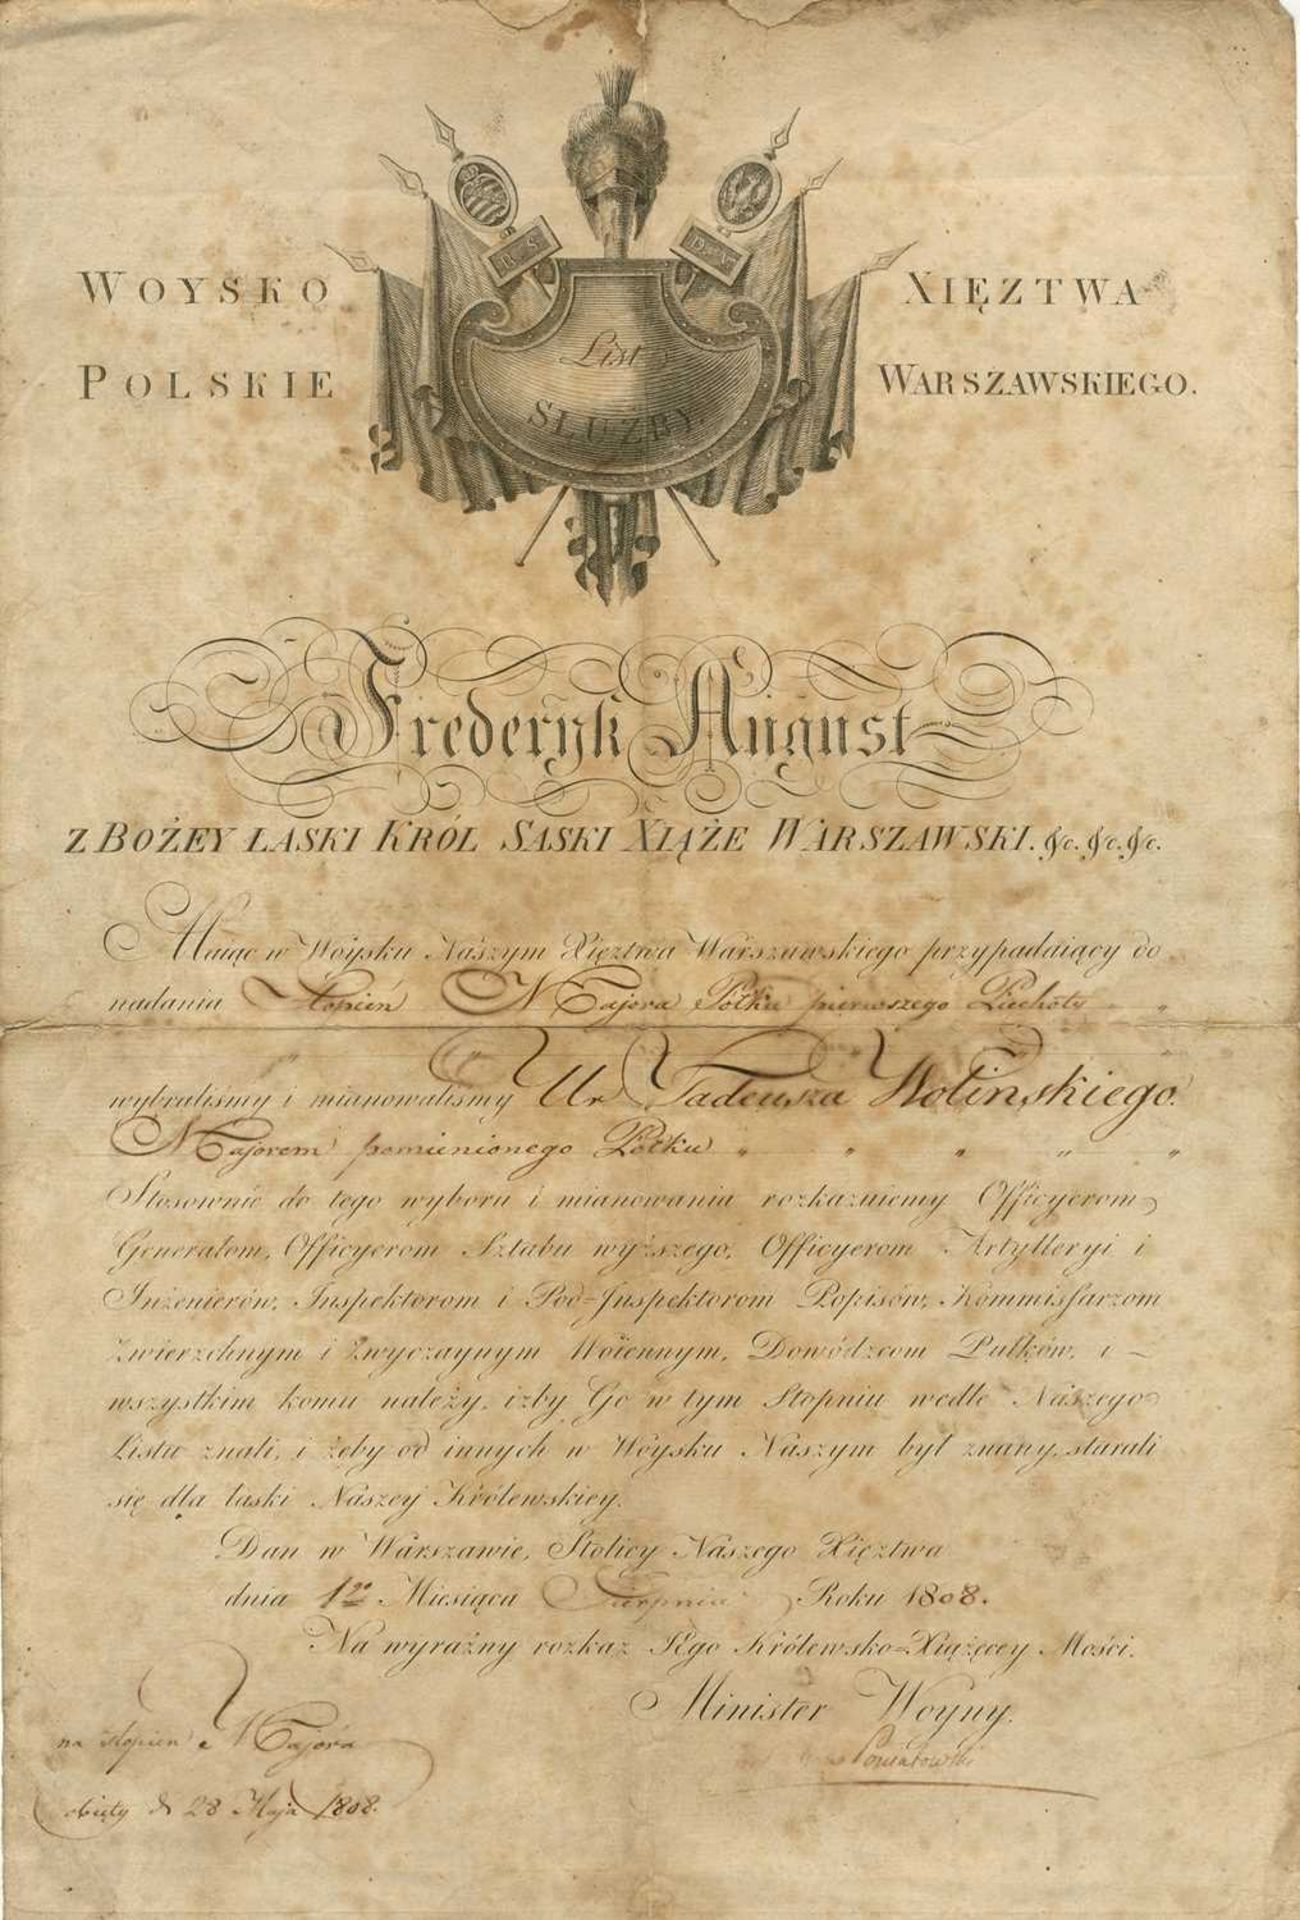 WOYSKO XIĘZTWA
POLSKIE WARSZAWSKIEGO.
K S D X W
List
SŁUŻBY
Frederyk August
Z BOŻEY ŁASKI KRÓL SASKI XIĄŻE WARSZAWSKI. &c. &c. &c.
Maiąc w Woysku Naszym Xięztwa Warszawskiego przypadaiący do
nadania Stopień Majora Półku pierwszego Piechoty „
wybraliśmy i mianowaliśmy Ur Tadeusza Wolinskiego.
Majorem pomienionego Półku „ „ „ „ „
Stosownie do tego wyboru i mianowania rozkazuiemy Officyerom
Generałom, Officyerom Sztabu wyższego, Officyerom Artylleryi i
Inżenierów, Inspektorom i Pod=Inspektorom Popisów, Kommissarzom
Zwierzchnym i Zwyczaynym Woiennym, Dowódzcom Pułków, i
wszystkim komu należy, izby Go w tym Stopniu wedle Naszego
Listu znali, i żeby od innych w Woysku Naszym był znany, starali
się dla łaski Naszey Królewskiey.
Dan w Warszawie, Stolicy Naszego Xięztwa
dnia 1go Miesiąca Sierpnia Roku 1808.
Na wyraźny rozkaz JEgo Królewsko=Xiążęcey Mości.
Minister Woyny.
Poniatowski
na stopień Majora
obięty d 28 Maja 1808.